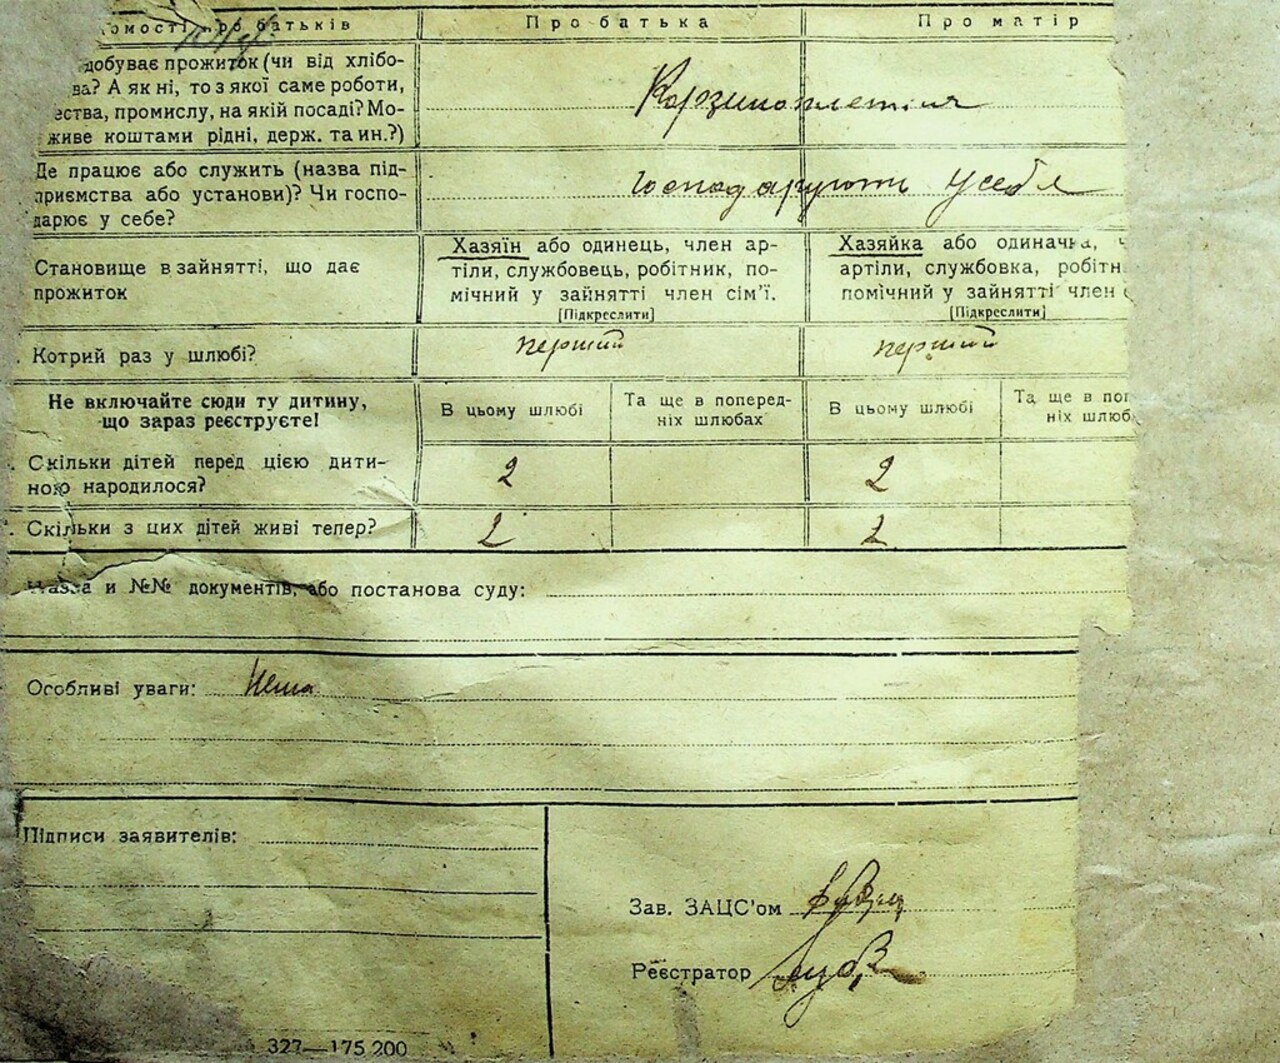 омості про батьків Про батька Про матір
добуває прожиток (чи від хлібо-
ва? А як ні, то з якої саме роботи,
ества, промислу, на якій посаді? Мо-
живе коштами рідні, держ. та ин.?)
Корзиноплетіння
Де працює або служить (назва під-
приємства або установи)? Чи госпо-
дарює у себе?
господарюють у себе
Становище в зайнятті, що дає
прожиток
Хазяїн або одинець, член ар-
тіли, службовець, робітник, по-
мічний у зайнятті член сім'ї.
[Підкреслити]
Хазяйка або одиначка, ч
артіли, службовка, робітн
помічний у зайнятті член
[Підкреслити]
. Котрий раз у шлюбі? перший перший
Не включайте сюди ту дитину,
що зараз реєструєте!
В цьому шлюбі
Та ще в поперед-
ніх шлюбах
В цьому шлюбі
Та ще в поп
ніх шлюб
. Скільки дітей перед цією дити-
ною народилося?
2 2
. Скільки з цих дітей живі тепер? 2 2
Назва и №№ документів, або постанова суду:
Особливі уваги: Нема
Підписи заявителів:
Зав. ЗАЦС'ом
Реєстратор
327—175 200